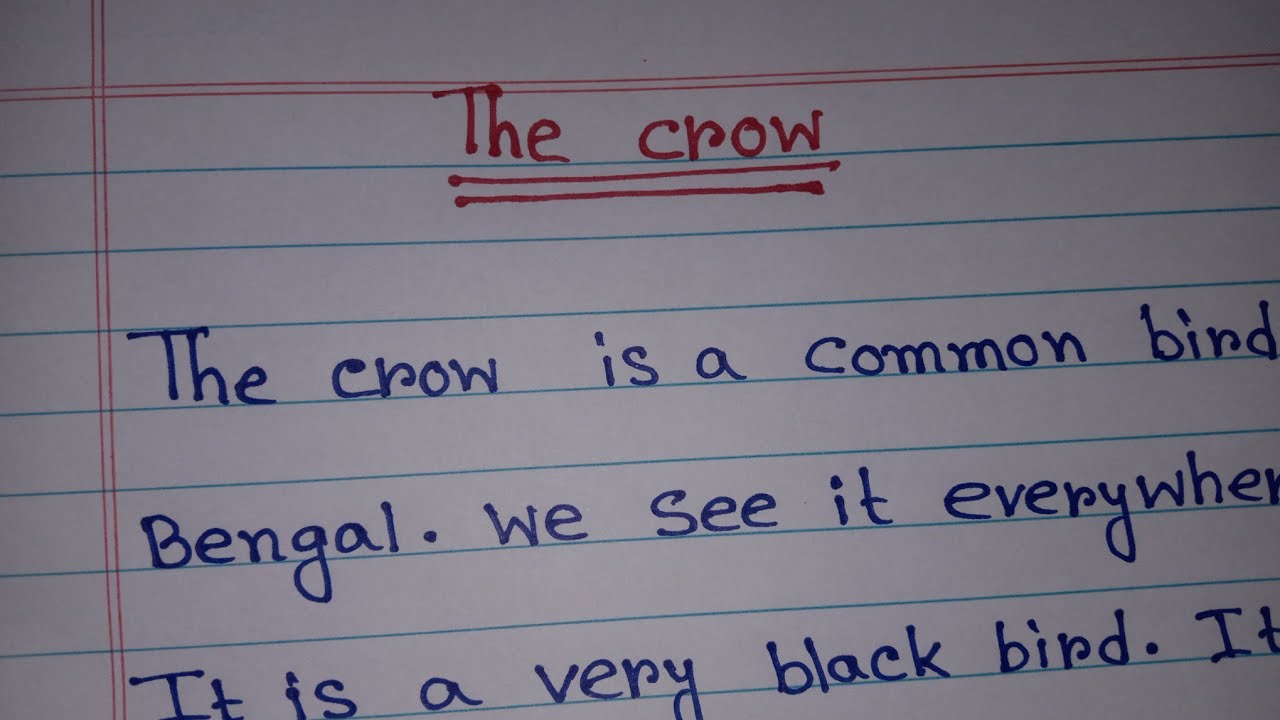 The crow
The crow is a common bird
Bengal. We see it everywher
It is a very black bird. It